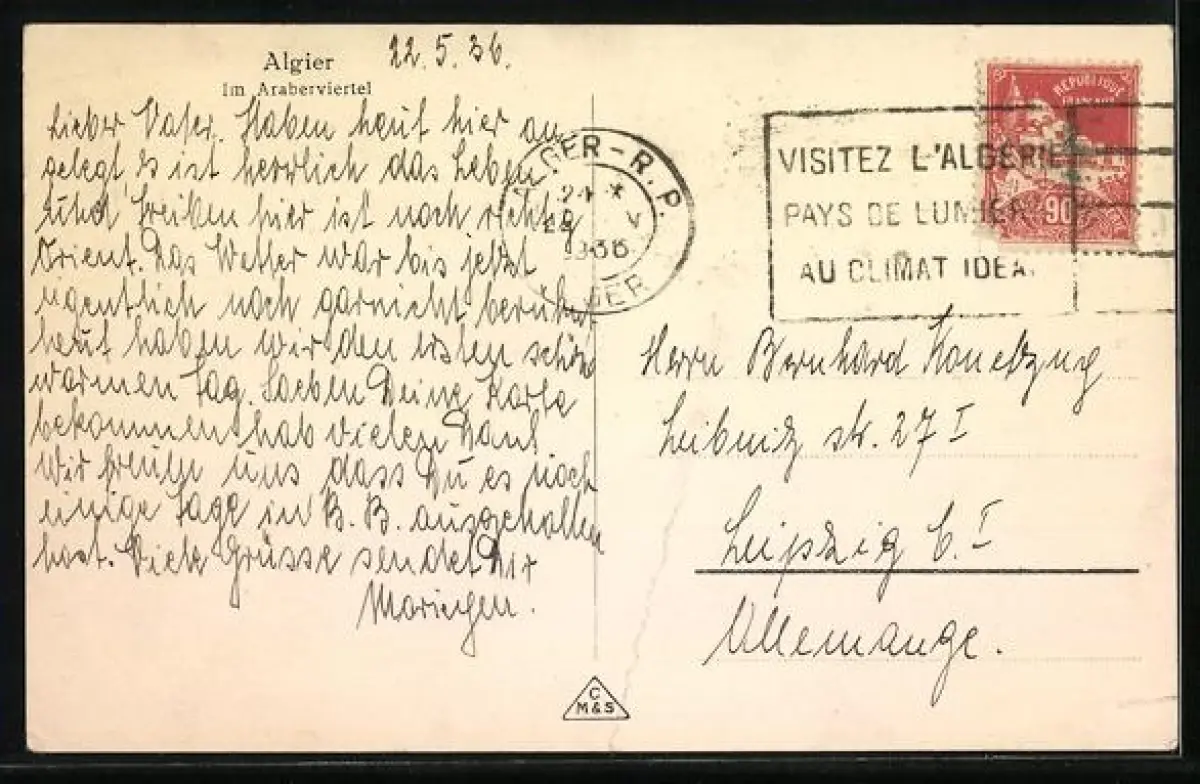 Algier
Im Araberviertel
22.5.36.
Lieber Vater. Haben heut hier an
gelegt, es ist herrlich das Leben
und Treiben hier ist noch richtig
Orient. Das Wetter war bis jetzt
eigentlich noch garnicht berühmt
heut haben wir den ersten schön
warmen Tag. Soeben Deine Karte
bekommen hab vielen Dank
Wir freuen uns dass Du es noch
einige Tage in B. B. ausgehalten
hast. Viele Grüsse sendet Dir
ALGER-R.P.
24 *
22 V
1936
ALGER
VISITEZ L'ALGERIE
PAYS DE LUMIER
AU CLIMAT IDEA
REPUBLIQUE
FRANÇAISE
90
Herrn Bernhard
Leibnitz str. 27 I
Leipzig C. I
Allemange.
C
M&S